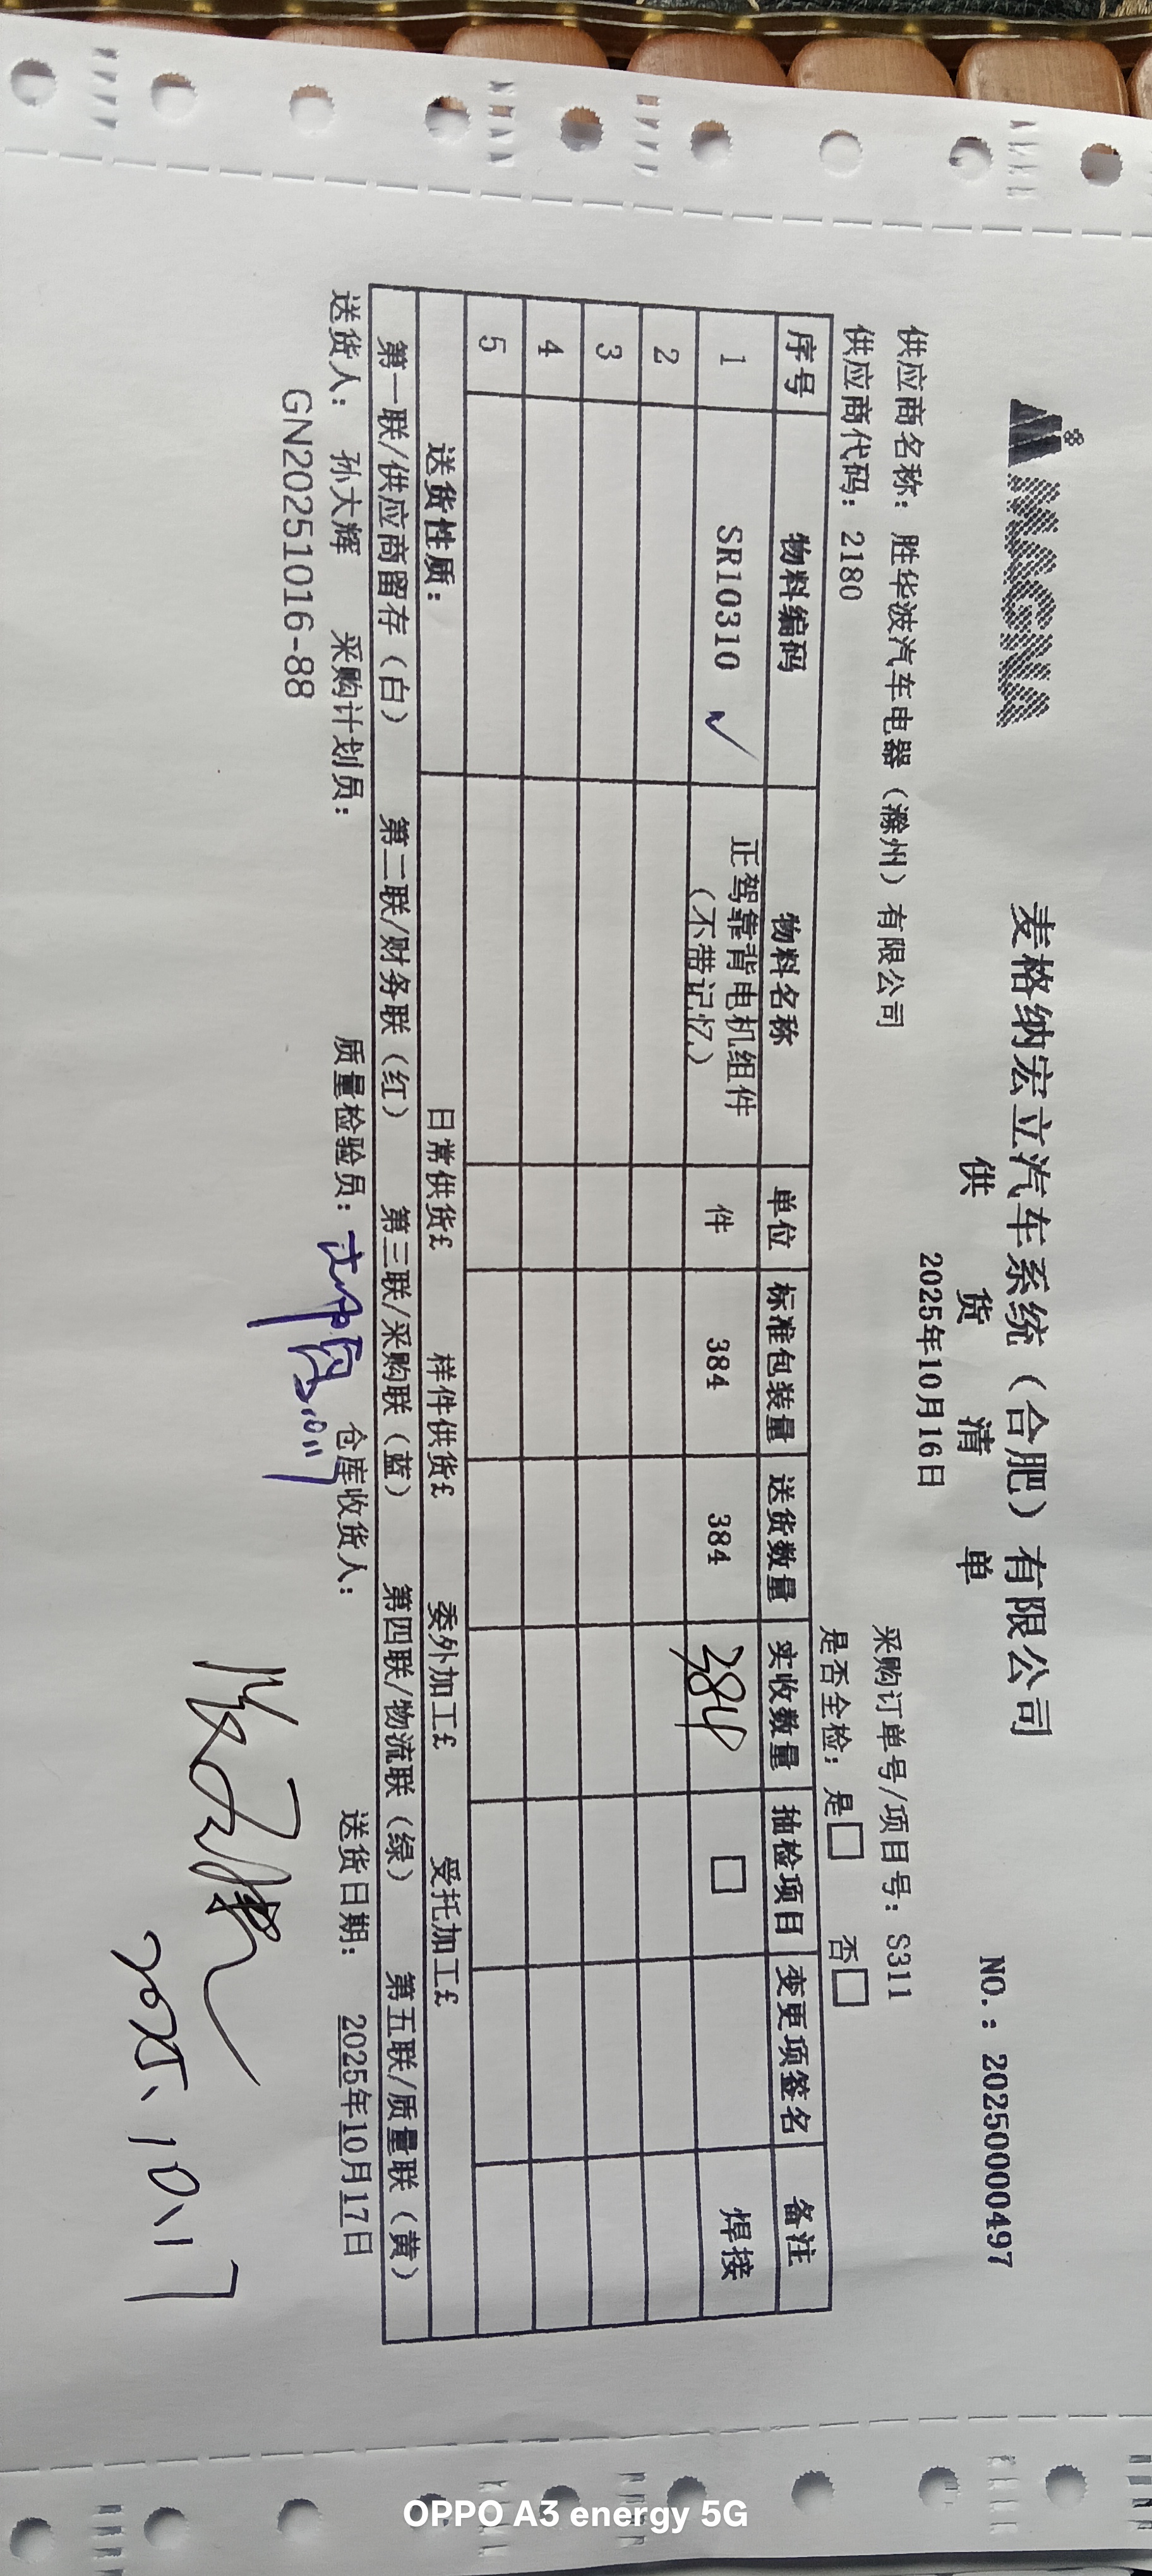 MAGNA
麦格纳宏立汽车系统（合肥）有限公司
供 货 清 单
NO.：20250000497
2025年10月16日
供应商名称：胜华波汽车电器（滁州）有限公司
采购订单号/项目号：S311
供应商代码：2180
是否全检：是□ 否□
序号 物料编码 物料名称 单位 标准包装量 送货数量 实收数量 抽检项目 变更项签名 备注
1 SR10310 ✓ 正驾靠背电机组件（不带记忆） 件 384 384 384 □ 焊接
2
3
4
5
送货性质： 日常供货£ 样件供货£ 委外加工£ 受托加工£
第一联/供应商留存（白） 第二联/财务联（红） 第三联/采购联（蓝） 第四联/物流联（绿） 第五联/质量联（黄）
送货人： 孙大辉 采购计划员： 质量检验员： 仓库收货人： 送货日期： 2025年10月17日
GN20251016-88
2025、10、17
OPPO A3 energy 5G